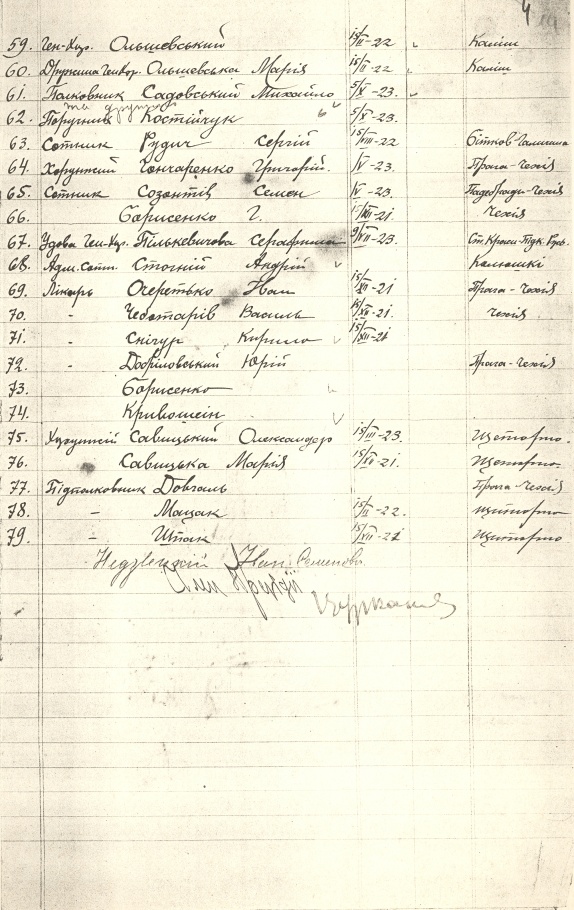 4
59. Ген-Хор. Ольшевський 15/II-22 Каліш
60. Дружина Генхор. Ольшевська Марія 15/II-22 Каліш
61. Полковник Садовський Михайло 5/X-23.
та дружина
62. Поручник Костійчук 5/X-23.
63. Сотник Рудич Сергій 15/VIII-22 Бітков-Галичина
64. Хорунжий Гончаренко Григорій. /V-23. Прага-Чехія
65. Сотник Созонтів Семен /V-23. Падебради-Чехія
66. Борисенко Г. 15/XII-21. Чехія
67. Удова Ген-Хор. Пількевичова Серафима 9/XII-23.
68. Адм. Сотн. Стогній Андрій
69. Лікарь Очеретько Іван 15/XII-21 Прага-Чехія
70. - Чеботарів Василь 15/XII-21. Чехія
71. - Снігур Кирило 15/XII-21
72. - Добриловський Юрій Прага-Чехія
73. Борисенко
74. Кривошеін
75. Хорунжий Савицький Олександер 15/III-23. Щепіорно.
76. Савицька Марія 15/XII-21. Щепіорно
77. Підполковник Довгаль Прага-Чехія
78. - Мацак 15/II-22. Щепіорно
79. - Шпак 15/XII-21 Щепіорно
Недзвецкій Іван Семенович